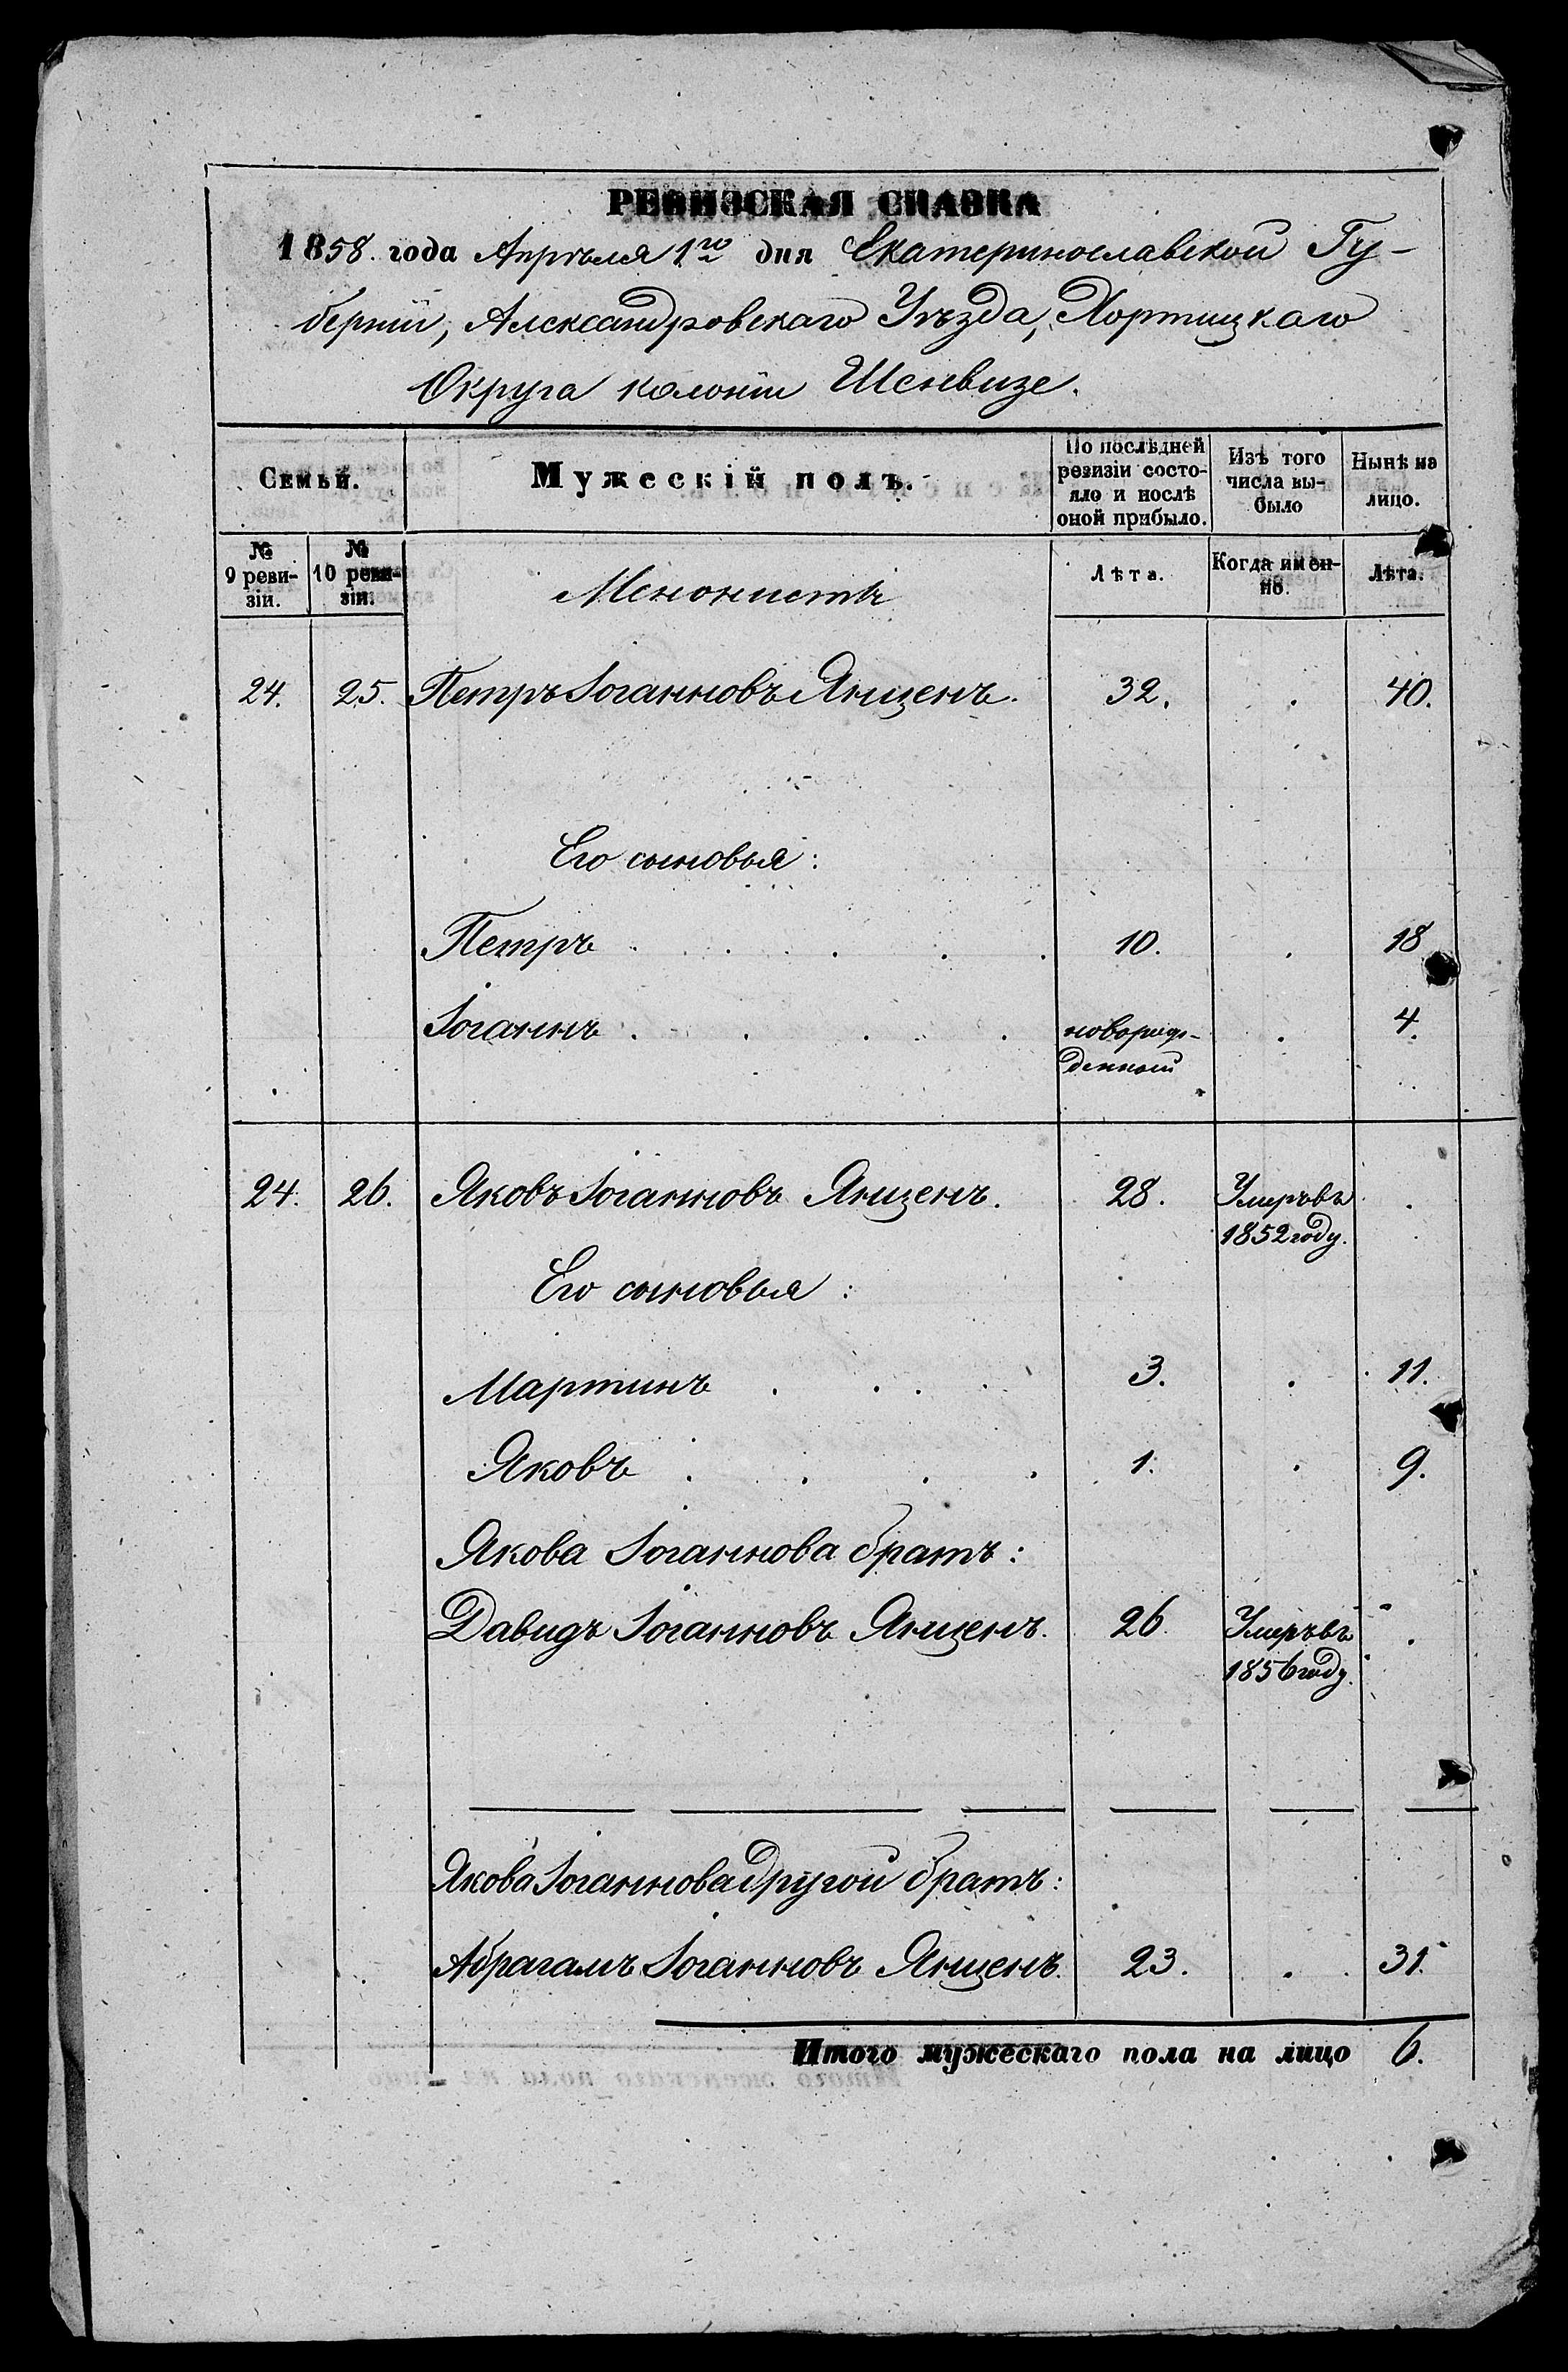 РЕВИЗСКАЯ СКАЗКА
1858. года Апрѣля 1го дня Екатеринославской Гу-
берніи, Александровскаго Уѣзда, Хортицкаго
Округа колоніи Шенвизе.
Семьи. Мужескій полъ. По послѣдней ревизіи состояло и послѣ оной прибыло. Изъ того числа выбыло Нынѣ на лицо.
№ 9 ревизіи. № 10 ревизіи. Менонистъ Лѣта. Когда именно. Лѣта.
24. 25. Петръ Іоганновъ Янценъ. 32. . 40.
Его сыновья:
Петръ . . . . . 10. . 18
Іоганнъ . . . . новорож- . 4.
денный
24. 26. Яковъ Іоганновъ Янценъ. 28. Умеръ въ .
1852 году.
Его сыновья:
Мартинъ . . . . 3. . 11.
Яковъ . . . . 1. . 9.
Якова Іоганнова братъ:
Давидъ Іоганновъ Янценъ. 26. Умеръ въ .
1856 году.
Якова Іоганнова другой братъ:
Абрагамъ Іоганновъ Янценъ. 23. . 31.
Итого мужескаго пола на лицо 6.